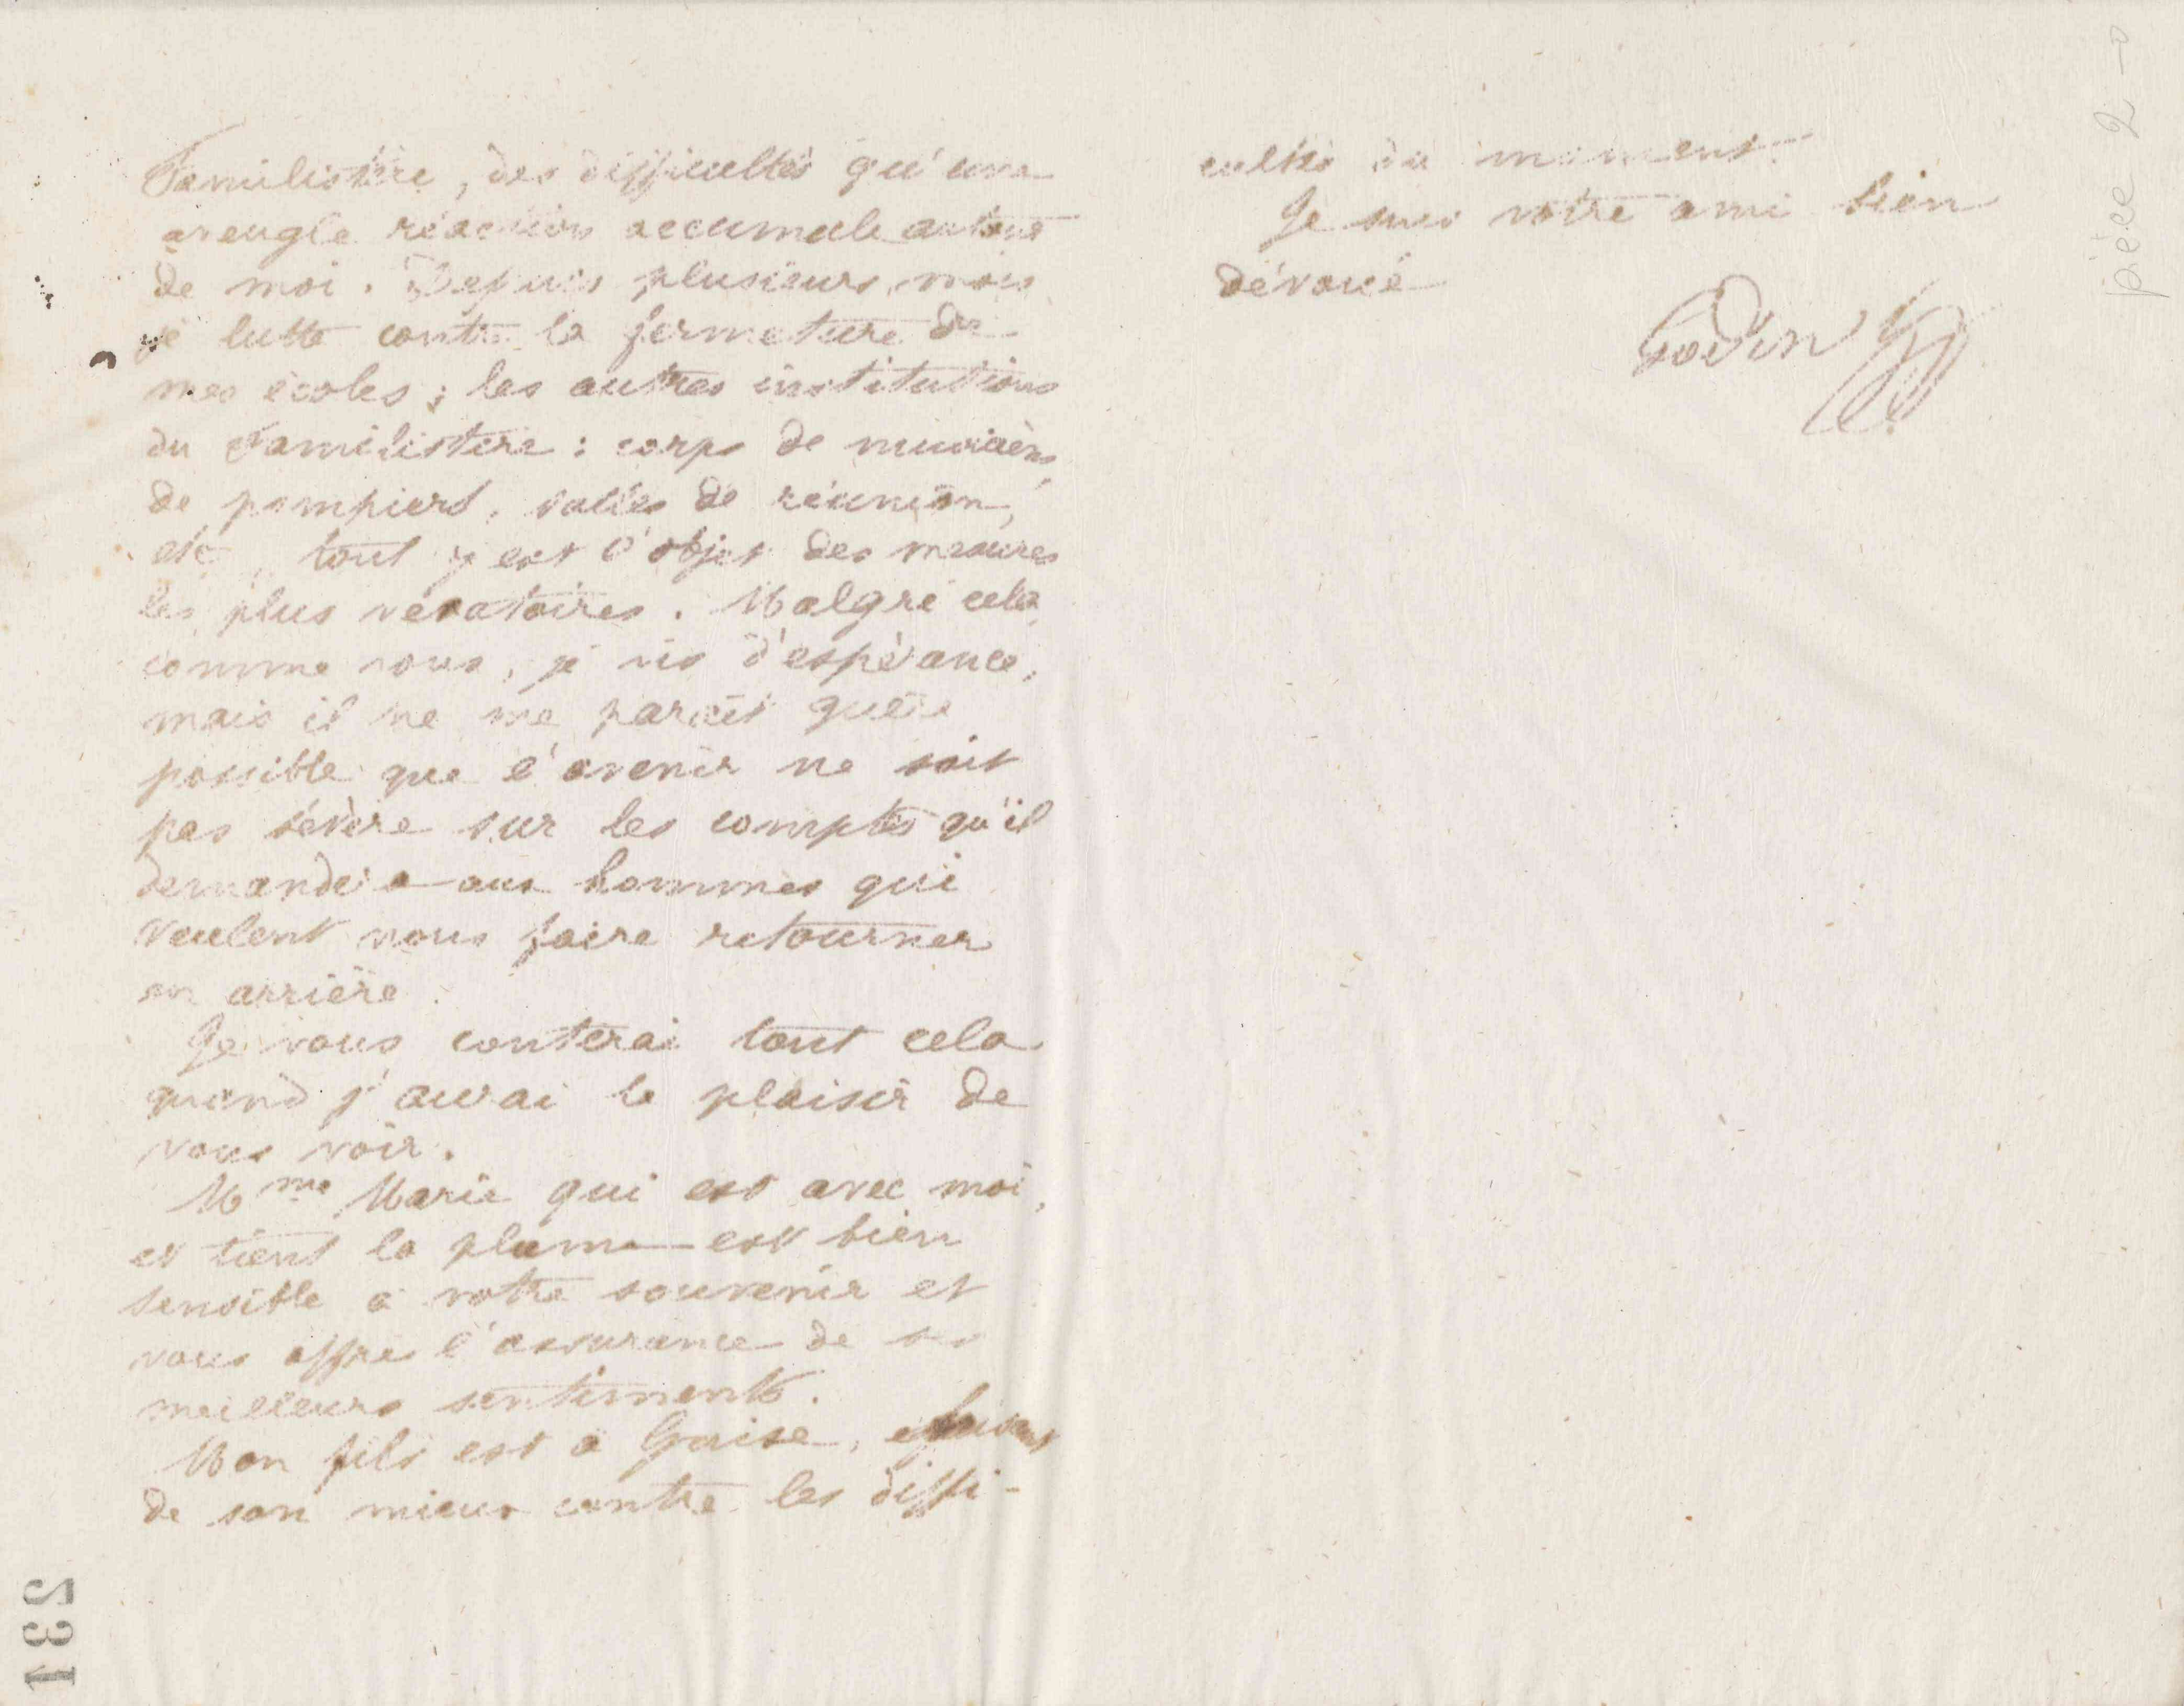 Familistère, des difficultés qu'une
aveugle réaction accumule autour
de moi. Depuis plusieurs mois
je lutte contre la fermeture de
mes écoles ; les autres institutions
du Familistère : corps de musiciens,
de pompiers, salles de réunion,
etc, tout y est l'objet des mesures
les plus vexatoires. Malgré cela,
comme vous, je vis d'espérance,
mais il ne me paraît guère
possible que l'avenir ne soit
pas sévère sur les comptes qu'il
demandera aux hommes qui
veulent nous faire retourner
en arrière.
Je vous conterai tout cela
quand j'aurai le plaisir de
vous voir.
Mme Marie qui est avec moi,
et tient la plume est bien
sensible à votre souvenir et
vous offre l'assurance de ses
meilleurs sentiments.
Mon fils est à Guise,
de son mieux contre les diffi-
cultés du moment.
Je suis votre ami bien
dévoué
Godin
pièce 2
231